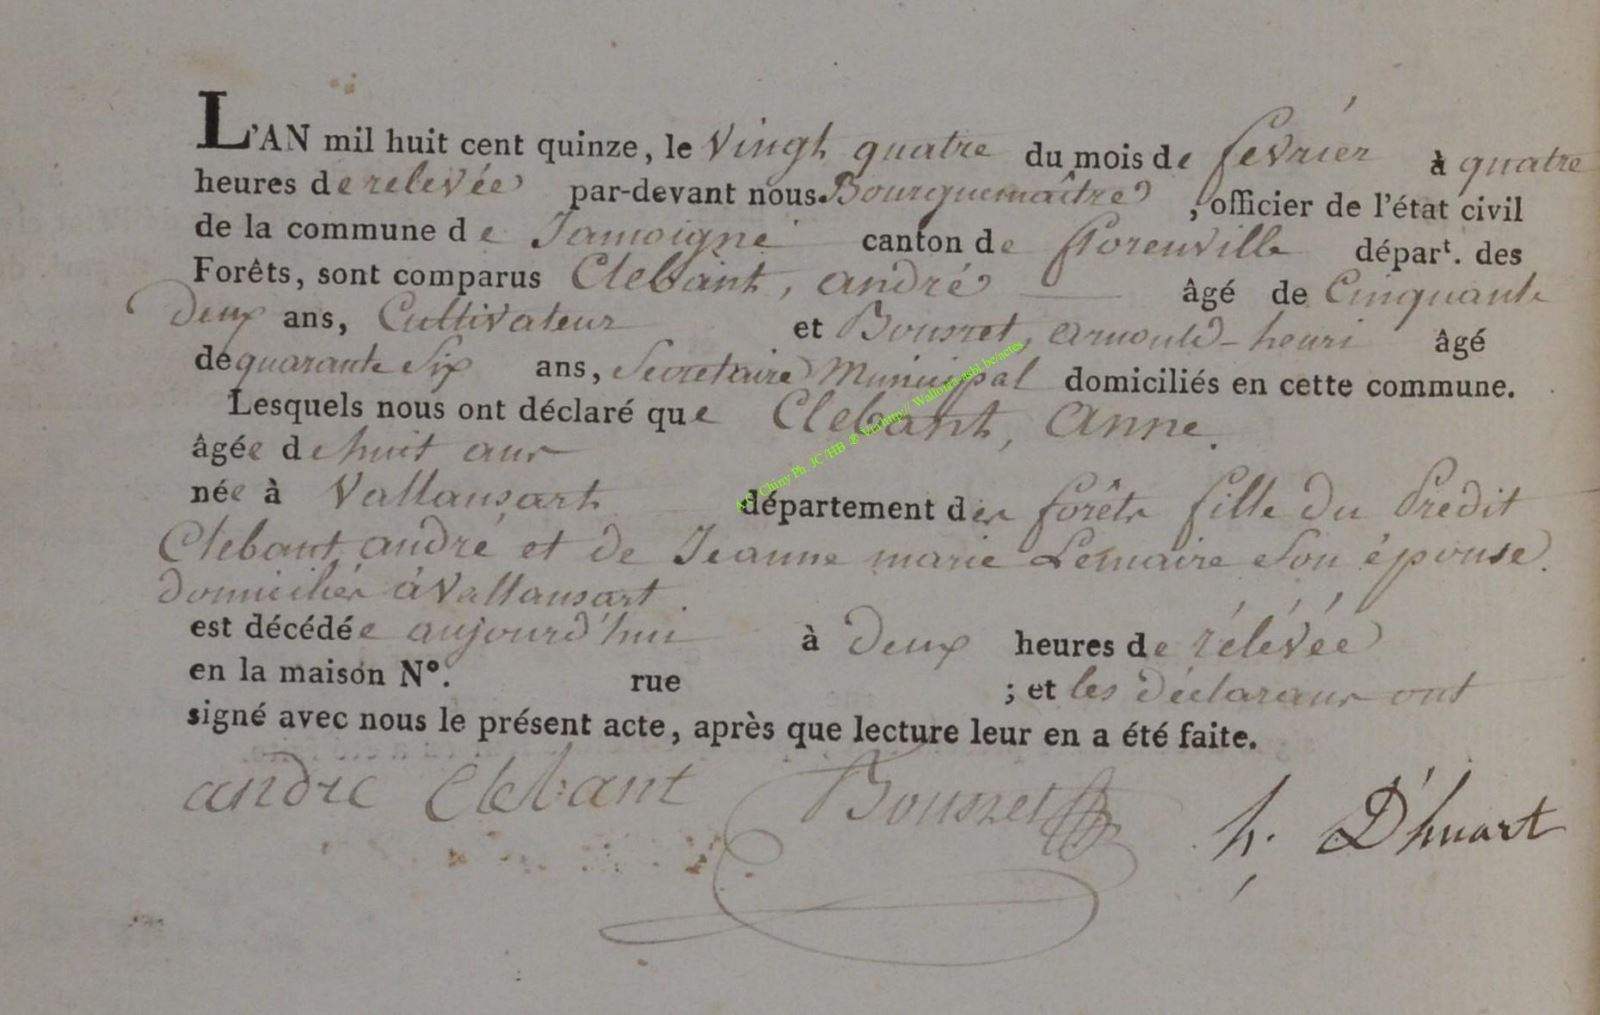 L'AN mil huit cent quinze, le Vingt quatre du mois de février à quatre
heures de relevée par-devant nous Bourguemaître, officier de l'état civil
de la commune de Jamoigne canton de florenville départ. des
Forêts, sont comparus Clebant, andré âgé de Cinquante
Deux ans, Cultivateur et Bousret, arnould-henri âgé
de quarante Six ans, Secretaire Municipal domiciliés en cette commune.
Lesquels nous ont déclaré que Clebant, Anne.
âgée de huit ans
née à Vallansart département des forêts fille du Predit
Clebant andré et de Jeanne marie Lemaire Son épouse.
domiciliés à Vallansart.
est décédée aujourd'hui à Deux heures de rélévée
en la maison N°. rue ; et les déclarans ont
signé avec nous le présent acte, après que lecture leur en a été faite.
andré Clebant Bousret h. D'huart